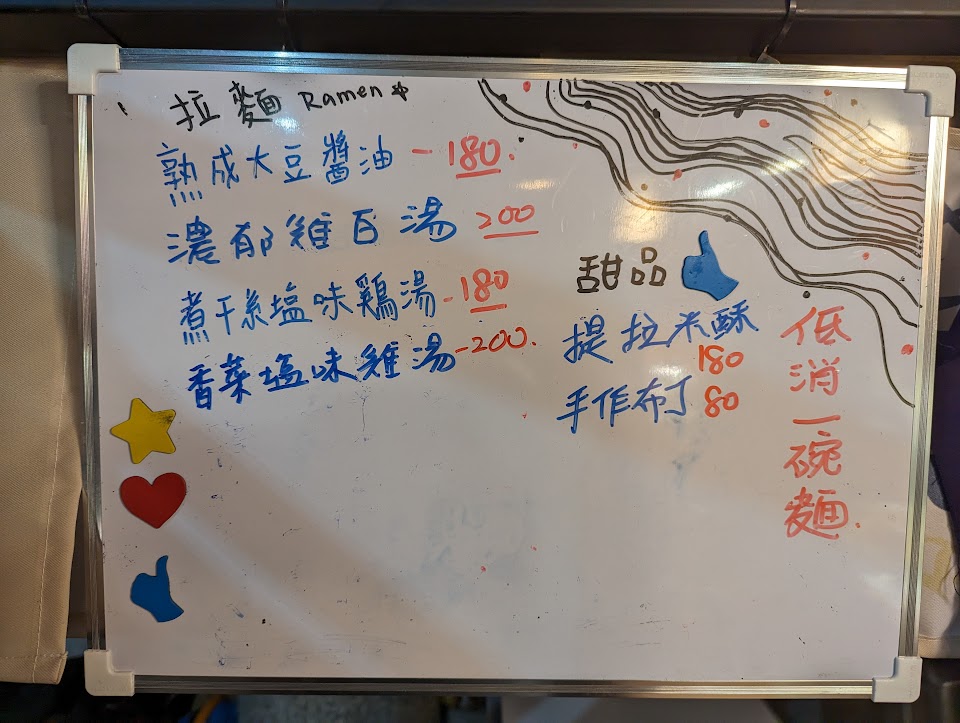 拉麵 Ramen
熟成大豆醬油 - 180.
濃郁雞白湯 200
煮干系塩味鶏湯 - 180
香菜塩味雞湯 - 200.
甜品
提拉米酥 180
手作布丁 80
低消一碗麵.